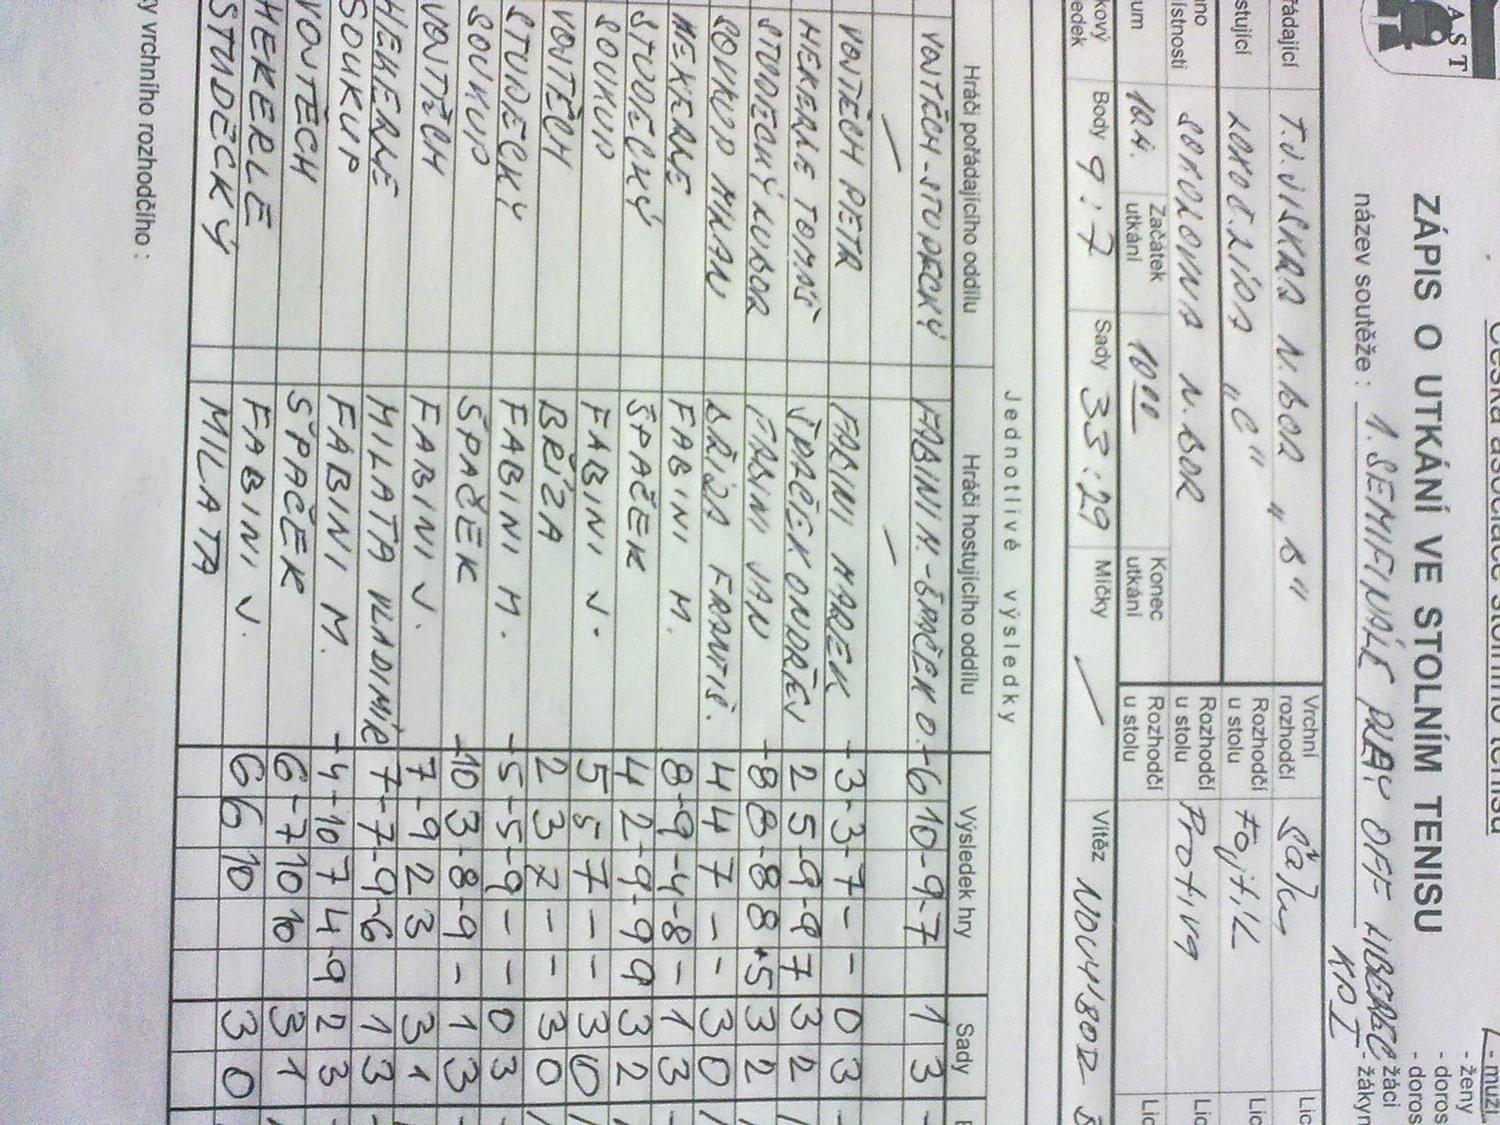 Česká asociace stolního tenisu
AST
ZÁPIS O UTKÁNÍ VE STOLNÍM TENISU
- muži
- ženy
- doros
- doros
- žáci
- žákyn
název soutěže : 1. SEMIFINÁLE PLAY OFF LIBEREC
KP I
řádající T.J. JISKRA N. BOR "B"
Vrchní rozhodčí
Lic
stující LOKO Č. LÍPA "C"
Rozhodčí u stolu Fojtík
Lic
no ístnosti SOKOLOVNA N. BOR
Rozhodčí u stolu Protiva
Lic
um 10.4.
Začátek utkání 10 00
Konec utkání
Rozhodčí u stolu
Lic
kový edek
Body 9 : 7
Sady 33 : 29
Míčky
Vítěz NOVÝ BOR
Jednotlivé výsledky
Hráči pořádajícího oddílu Hráči hostujícího oddílu Výsledek hry Sady
VOJTĚCH - STUDECKÝ FABINI M. - ŠPAČEK O. -6 10 -9 -7 1 3
VOJTĚCH PETR FABINI MAREK -3 -3 -7 - - 0 3
HEKERLE TOMÁŠ ŠPAČEK ONDŘEJ 2 5 -9 -9 7 3 2
STUDECKÝ LUBOR FABINI JAN -8 8 -8 8 5 3 2
SOUKUP MILAN BŘÍZA FRANTIŠ. 4 4 7 - - 3 0
HEKERLE FABINI M. 8 -9 -4 -8 - 1 3
STUDECKÝ ŠPAČEK 4 2 -9 -9 9 3 2
SOUKUP FABINI J. 5 5 7 - - 3 0
VOJTĚCH BŘÍZA 2 3 7 - - 3 0
STUDECKÝ FABINI M. -5 -5 -9 - - 0 3
SOUKUP ŠPAČEK -10 3 -8 -9 - 1 3
VOJTĚCH FABINI J. 7 -9 2 3 3 1
HEKERLE MILATA VLADIMÍR 7 -7 -9 -6 1 3
SOUKUP FABINI M. -4 -10 7 4 -9 2 3
VOJTĚCH ŠPAČEK 6 -7 10 10 3 1
HEKERLE FABINI J. 6 6 10 3 0
STUDĚCKÝ MILATA
y vrchního rozhodčího :